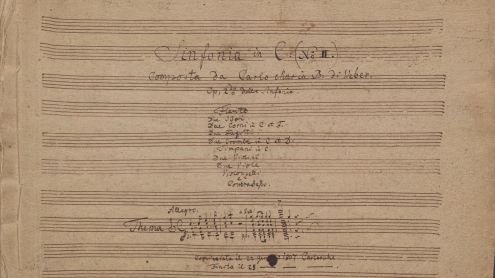 Sinfonia in C. (No II.)
Composta da Carlo Maria B. di Weber.
Op: 2da delle Sinfonie
Flauto
Due Oboi.
Due Corni in C et F.
Due Fagotti
Due Trombe in C et
Timpani in C.
Due Violini
Due Viole
Violoncelli
e
Contrabasso.
Allegro.
Thema
1807 Carlsruhe
il 28